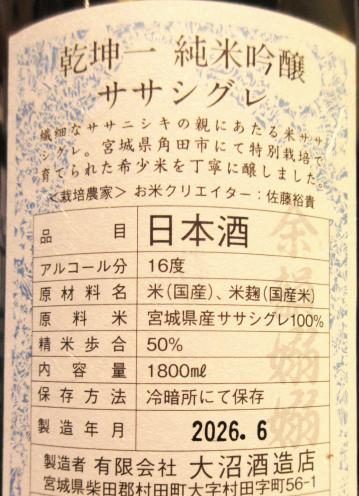 乾坤一 純米吟醸
ササシグレ
繊細なササニシキの親にあたる米ササ
シグレ。宮城県角田市にて特別栽培で
育てられた希少米を丁寧に醸しました。
＜栽培農家＞ お米クリエイター：佐藤裕貴
品目 日本酒
アルコール分 16度
原材料名 米(国産)、米麹(国産米)
原料米 宮城県産ササシグレ100%
精米歩合 50%
内容量 1800mℓ
保存方法 冷暗所にて保存
製造年月 2026.6
製造者 有限会社 大沼酒造店
宮城県柴田郡村田町大字村田字町56-1